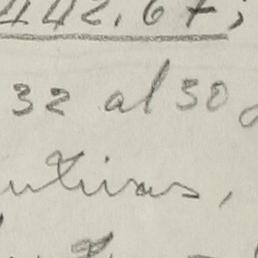 442.67;
32 al 30
utivas,